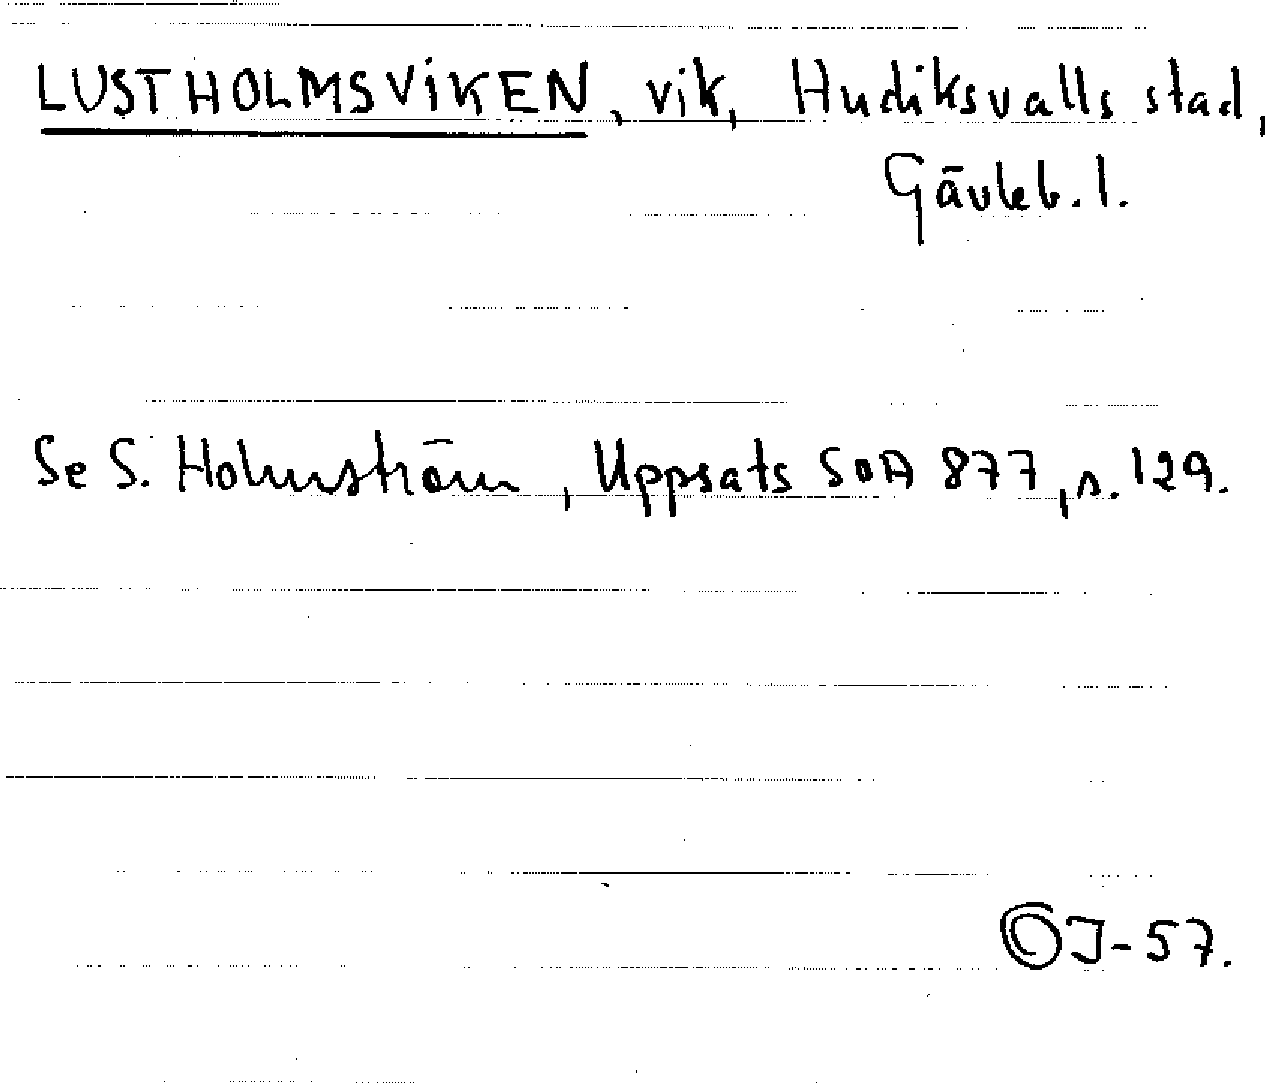 LUSTHOLMSVIKEN, vik, Hudiksvalls stad,
Gävleb. l.
Se S. Holmström, Uppsats SOA 877, s. 129.
OJ-57.